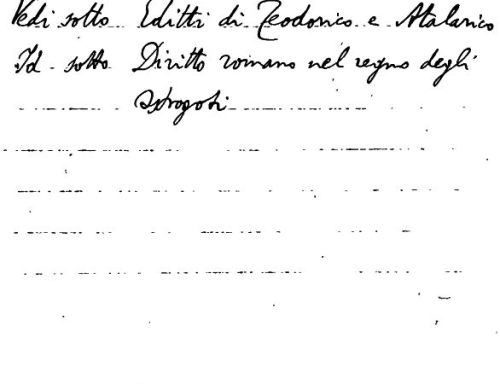 Vedi sotto Editti di Teodorico e Atalarico
Id. sotto Diritto romano nel regno degli
Ostrogoti